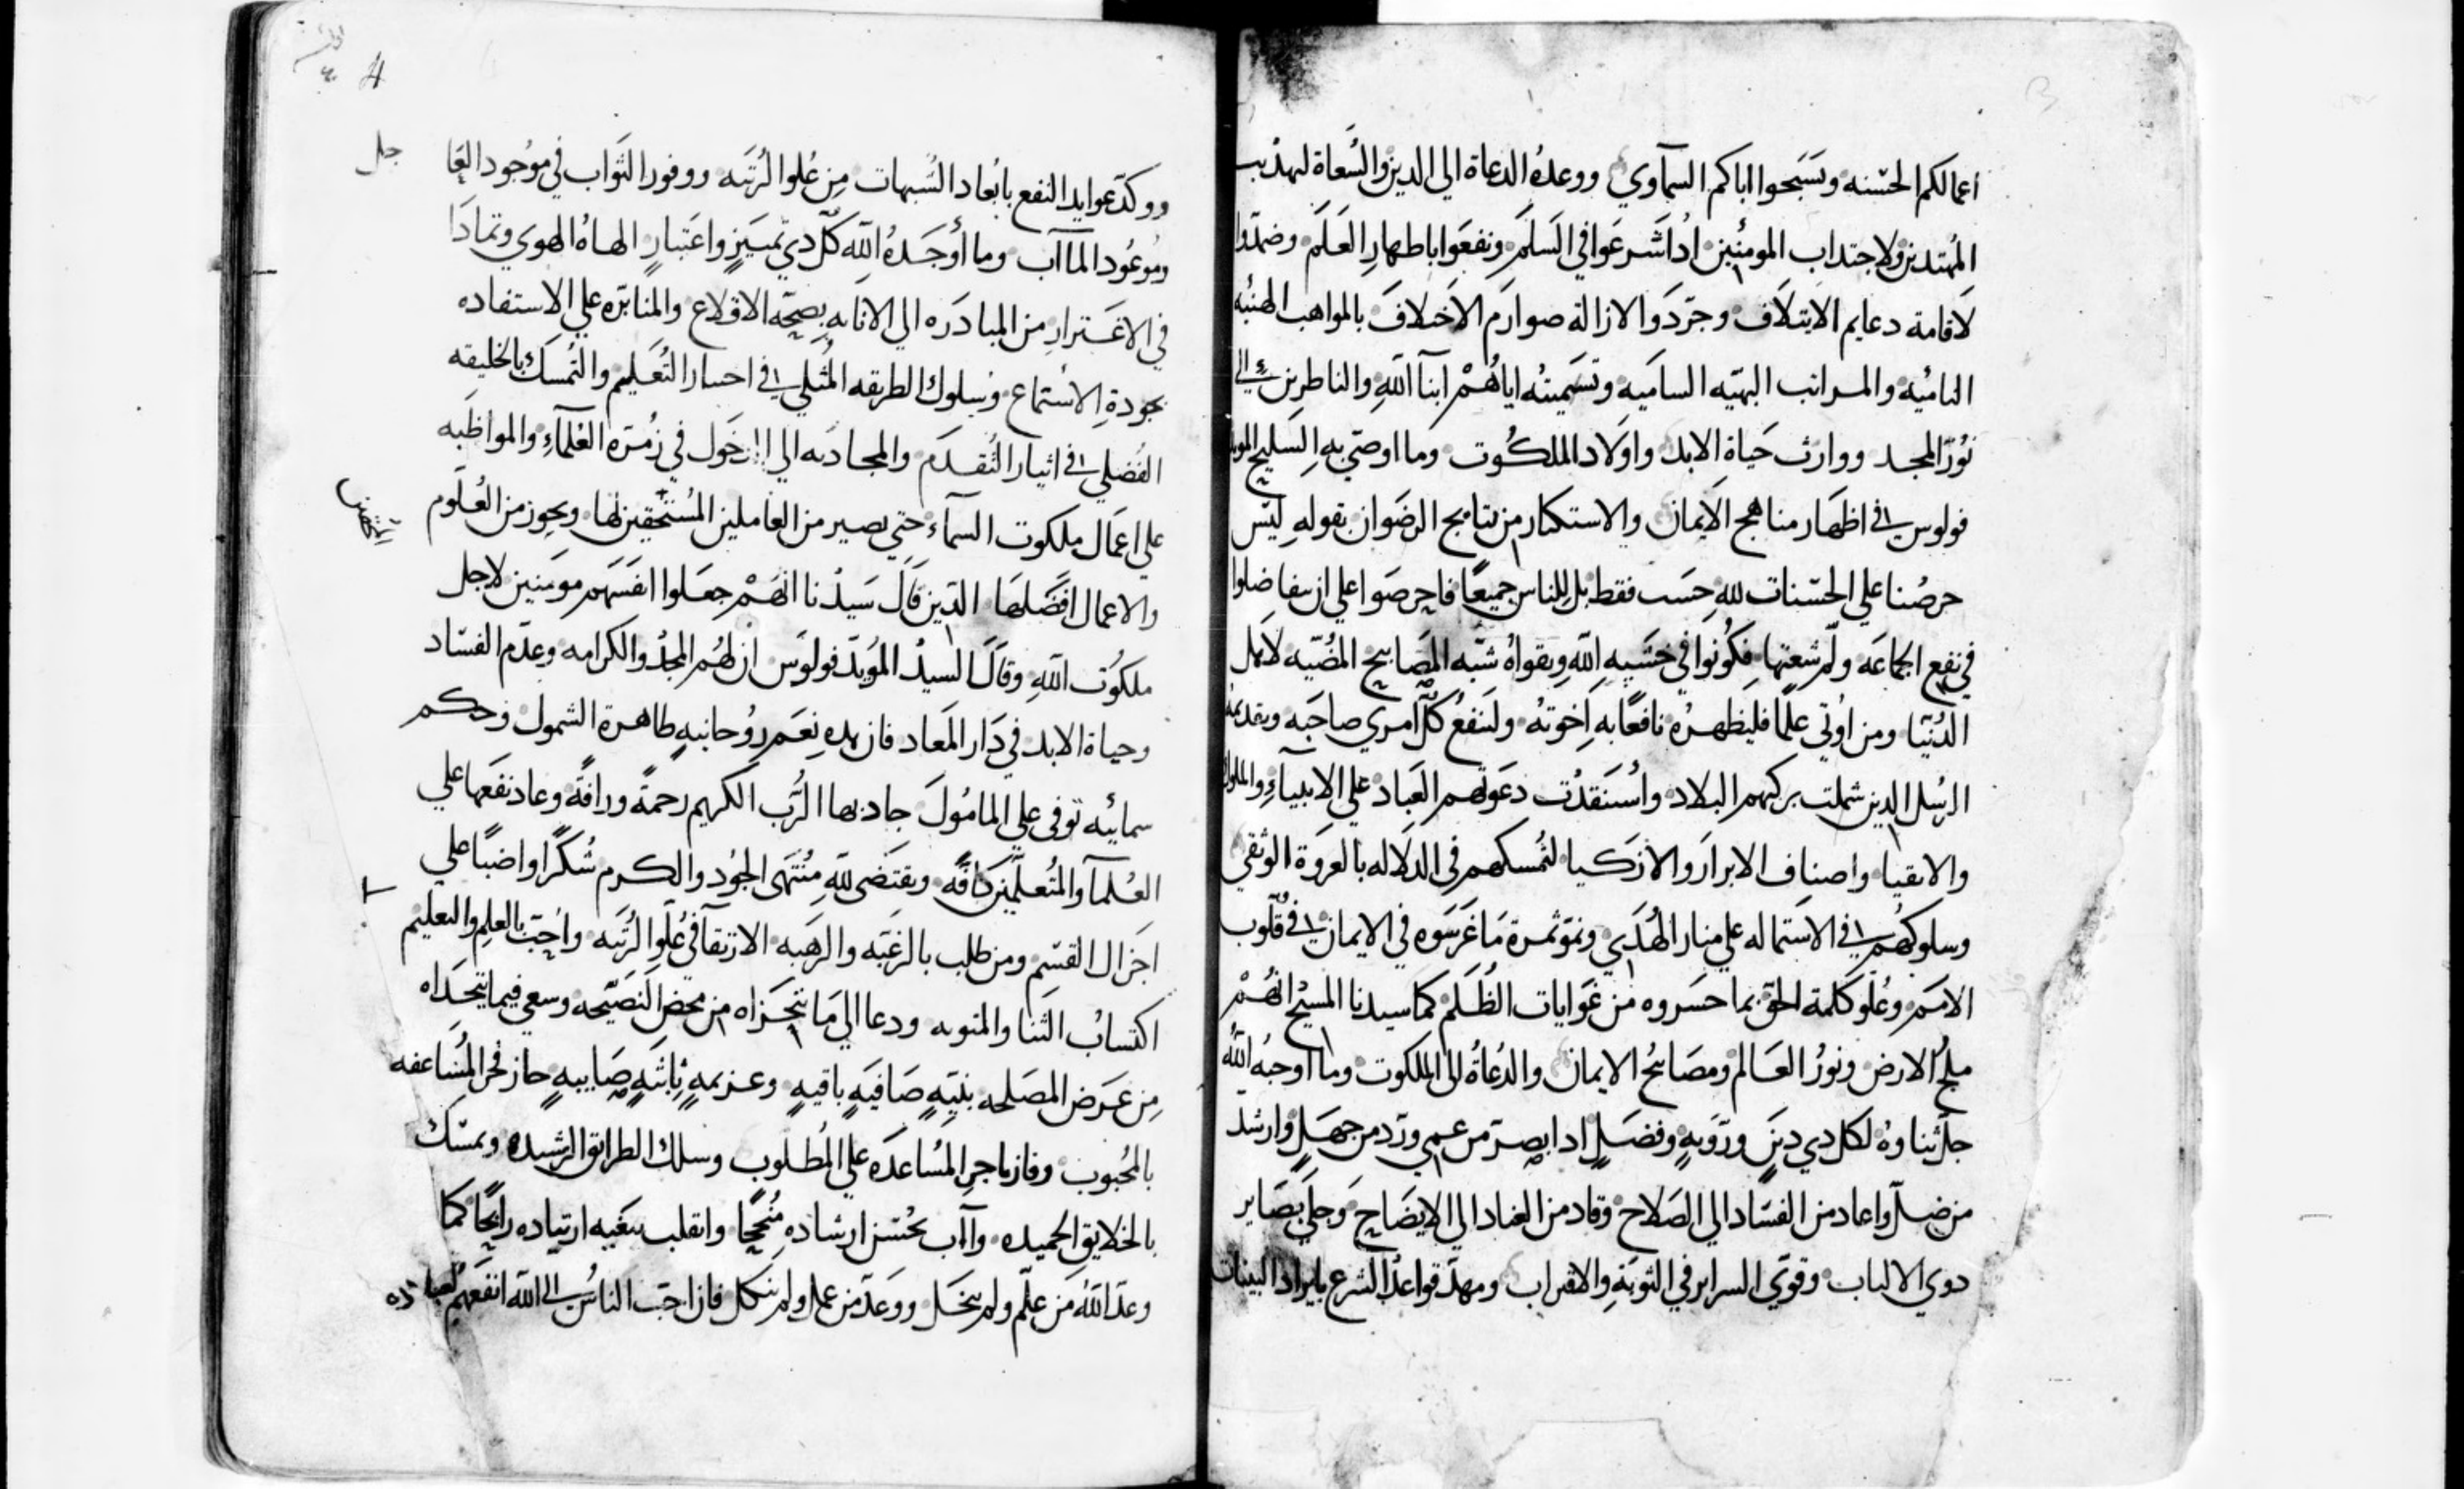 اعمالكم الحسنه ويسبحوا اباكم السماوي ووعده الدعاة الي الدين والسعاة لتهذيب
المهتدين ولاجتداب المومنين اذا شرعوا في السلم ونفعوا باظهار العلم وضمدوا
لاقامة دعايم الايتلاف وجردوا لازالة صوارم الاختلاف بالمواهب الهنيه
الناميه والمراتب البهيه الساميه وتسميته اياهم ابنا الله والناظرين الي
نور المجد ووارث حياة الابد واولاد الملكوت وما اوصي به السليح المويد
فولوس في اظهار مناهج الايمان والاستكثار من نتايج الرضوان بقوله ليس
حرصنا علي الحسنات لله حسب فقط بل للناس جميعا فاحرصوا علي ان تتفاضلوا
في نفع الجماعه ولم شعتها فكونوا في خشيه الله وتقواه شبه المصابيح المضيه لاهل
الدنيا ومن اوتي علما فليظهره نافعا به اخوته ولينفع كل امري صاحبه
الرسل الدين شملت بركتهم البلاد واستنقدت دعوتهم العباد علي الانبياء والملوك
والاتقيا واصناف الابرار والازكيا لتمسكهم في الدلاله بالعروة الوثقي
وسلوكهم في الاستماله علي منار الهدي ونمو ثمرة ما غرسوه في الايمان في قلوب
الامم وعلو كلمة الحق بما حسروه من غوايات الظلم كما سيدنا المسيح انهم
ملح الارض ونور العالم ومصابيح الايمان والدعاة الي الملكوت وما اوجبه الله
جل ثناوه لكل دي دين وروية وفضل ادا بصر من عمي ورد من جهل وارشد
من ضل واعاد من الفساد الي الصلاح وقاد من العناد الي الايضاح وجلي بصاير
دوي الالباب وقوي السراير في التوبة والاقتراب ومهد قواعد الشرع بايراد البينات
4
ووكد عوايد النفع بابعاد الشبهات من علو الرتبه ووفور الثواب في موجود العا
جل
وموعود الماآب وما أوجده الله كل دي تمييز واعتبار الهاه الهوي وتمادا
في الاغترار من المبادره الي الانابه بصحة الاقلاع والمثابره علي الاستفاده
بجودة الاستماع وسلوك الطريقه المثلي في اختيار التعليم والتمسك بالخليقه
الفضلي في اثيار التقدم والمجادبه الي الدخول في زمره العلماء والمواظبه
علي اعمال ملكوت السماء حتي يصير من العاملين المستحقين لها ويحوز من العلوم
والاعمال افضلها الدين قال سيدنا انهم جعلوا انفسهم مومنين لاجل
ملكوت الله وقال السيد المويد فولوس ان لهم المجد والكرامه وعدم الفساد
وحياة الابد في دار المعاد فان هده نعم روحانيه طاهرة الشمول وحكم
سمائيه توفي علي المامول جاد بها الرب الكريم رحمة ورافة وعاد نفعها علي
العلماء والمتعلمين كافه ويقتضي لله منتهي الجود والكرم شكرا واضبا علي
اجزال القسم ومن طلب بالرغبه والرهبه الارتقا في علو الرتبه واحب بالعلم والتعليم
اكتساب الثنا والمثوبه ودعا الي ما تنجزاه من محض النصيحه وسعي فيما يتحداه
من عرض المصلحه بنيه صافيه باقيه وعزيمه ثابته صايبه حاز فخر المساعفه
بالمحبوب وفاز باجر المساعده علي المطلوب وسلك الطرايق الرشيده وتمسك
بالخلايق الحميده وآب بحسن ارشاده منجحا وانقلب ببغيه ارتياده رابحا كما
وعد الله من علم ولم يبخل ووعد من عمل ولم ينكل فان احب الناس الي الله انفعهم لعباده